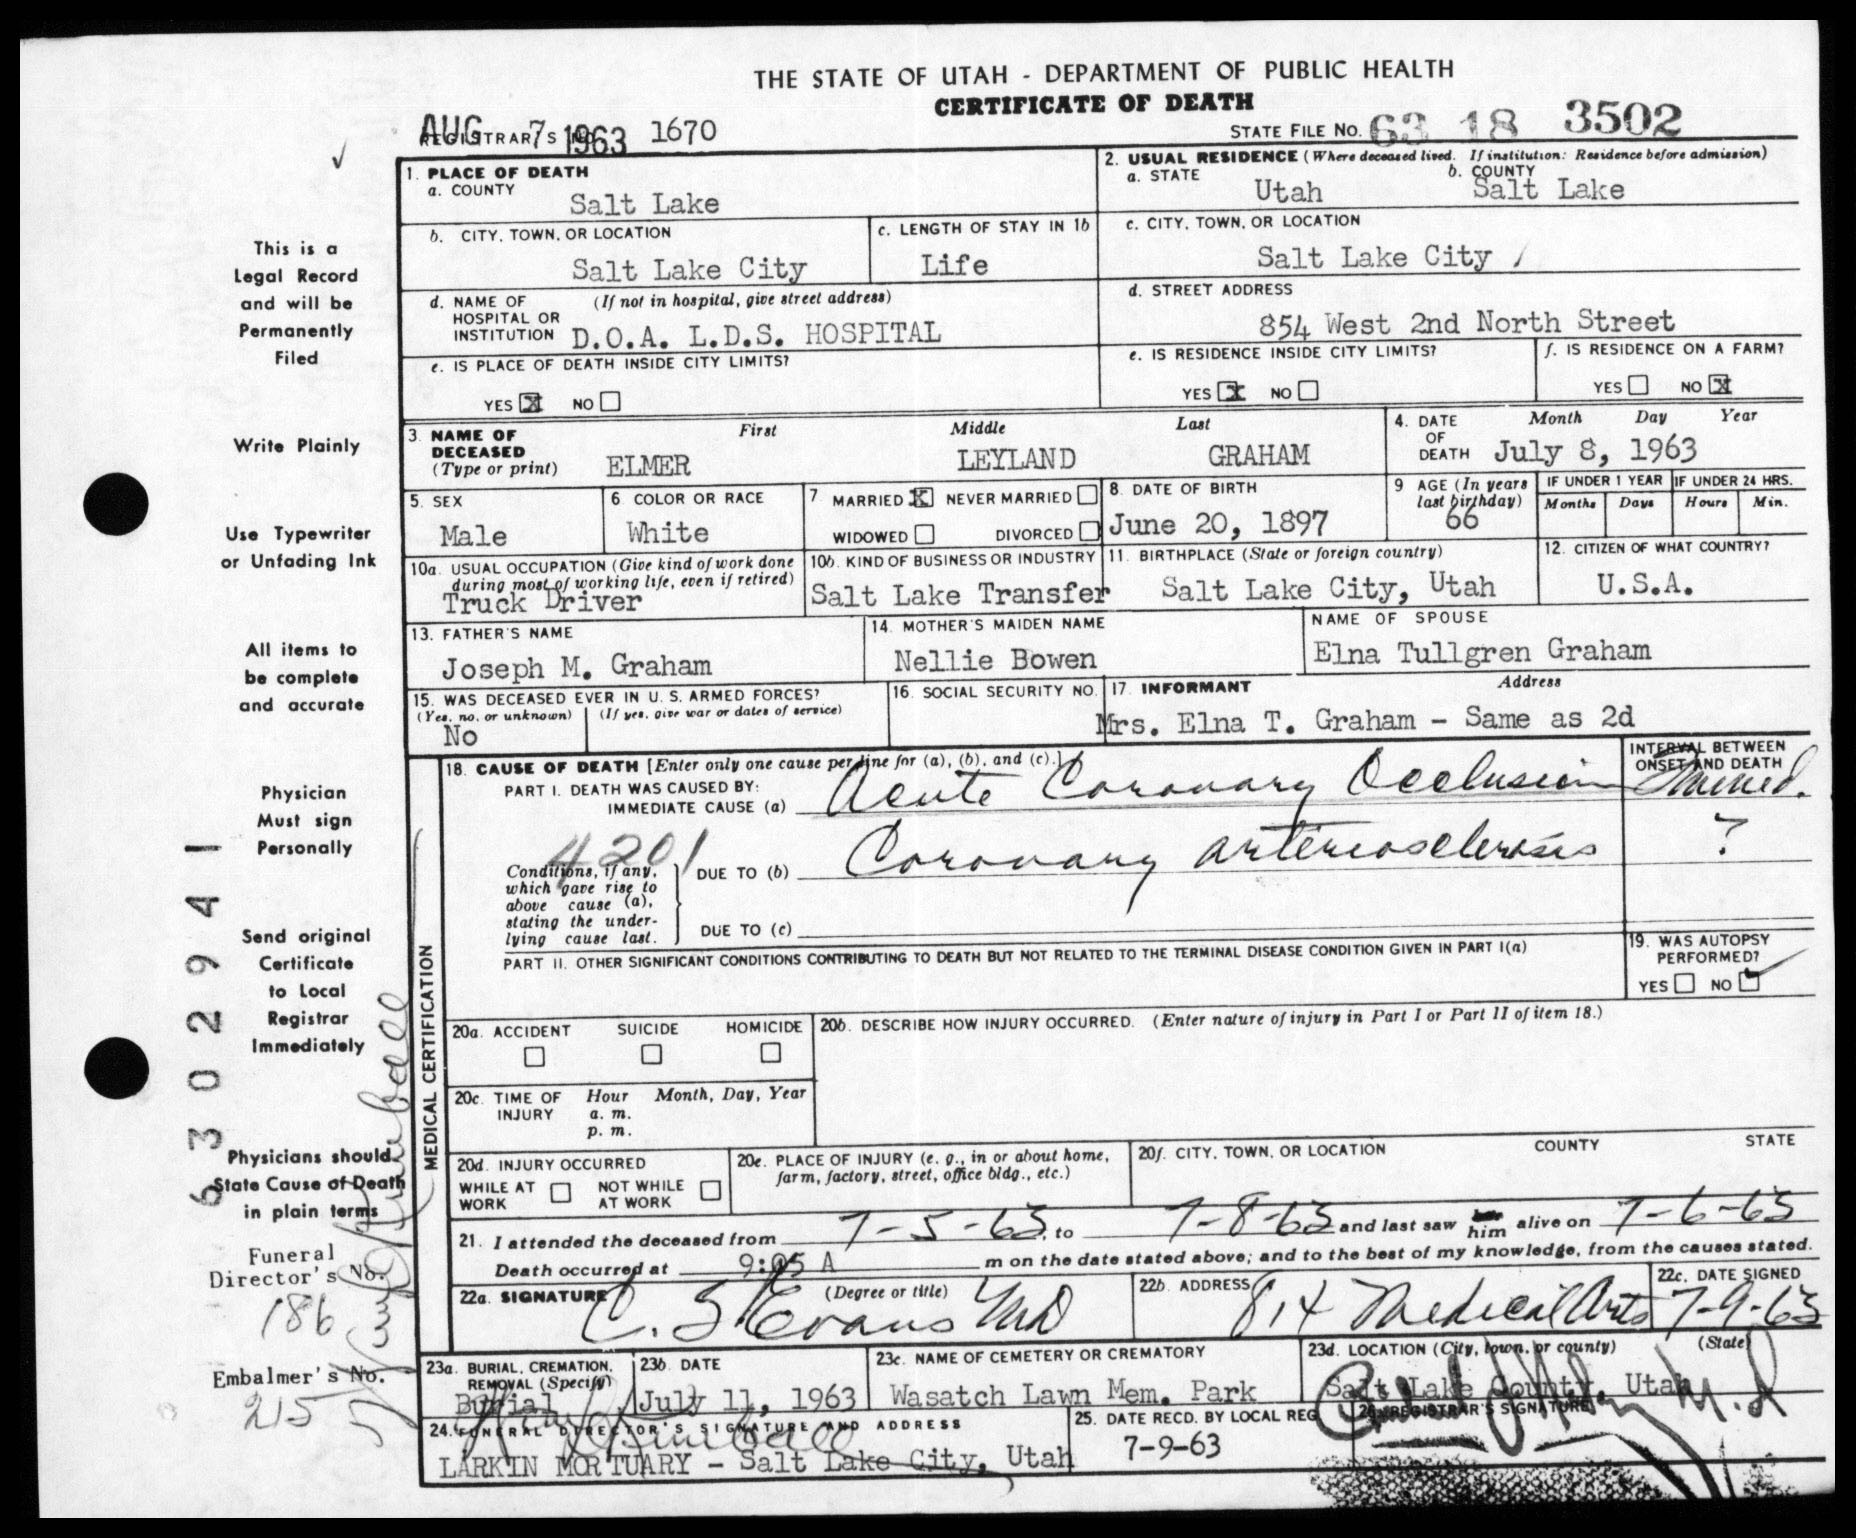 THE STATE OF UTAH - DEPARTMENT OF PUBLIC HEALTH
CERTIFICATE OF DEATH
AUG 7 1963
REGISTRAR'S NO. 1670
STATE FILE NO. 63 18 3502
This is a
Legal Record
and will be
Permanently
Filed
Write Plainly
Use Typewriter
or Unfading Ink
All items to
be complete
and accurate
Physician
Must sign
Personally
Send original
Certificate
to Local
Registrar
Immediately
Physicians should
State Cause of Death
in plain terms
Funeral
Director's No.
186
Embalmer's No.
215
6302941
1. PLACE OF DEATH
a. COUNTY
Salt Lake
b. CITY, TOWN, OR LOCATION
Salt Lake City
c. LENGTH OF STAY IN 1b
Life
d. NAME OF HOSPITAL OR INSTITUTION (If not in hospital, give street address)
D.O.A. L.D.S. HOSPITAL
e. IS PLACE OF DEATH INSIDE CITY LIMITS?
YES X NO
2. USUAL RESIDENCE (Where deceased lived. If institution: Residence before admission)
a. STATE
Utah
b. COUNTY
Salt Lake
c. CITY, TOWN, OR LOCATION
Salt Lake City
d. STREET ADDRESS
854 West 2nd North Street
e. IS RESIDENCE INSIDE CITY LIMITS?
YES X NO
f. IS RESIDENCE ON A FARM?
YES NO X
3. NAME OF DECEASED (Type or print)
First Middle Last
ELMER LEYLAND GRAHAM
4. DATE OF DEATH
Month Day Year
July 8, 1963
5. SEX
Male
6 COLOR OR RACE
White
7 MARRIED X NEVER MARRIED
WIDOWED DIVORCED
8. DATE OF BIRTH
June 20, 1897
9 AGE (In years last birthday)
66
IF UNDER 1 YEAR
Months Days
IF UNDER 24 HRS.
Hours Min.
10a. USUAL OCCUPATION (Give kind of work done
during most of working life, even if retired)
Truck Driver
10b. KIND OF BUSINESS OR INDUSTRY
Salt Lake Transfer
11. BIRTHPLACE (State or foreign country)
Salt Lake City, Utah
12. CITIZEN OF WHAT COUNTRY?
U.S.A.
13. FATHER'S NAME
Joseph M. Graham
14. MOTHER'S MAIDEN NAME
Nellie Bowen
NAME OF SPOUSE
Elna Tullgren Graham
15. WAS DECEASED EVER IN U. S. ARMED FORCES?
(Yes, no, or unknown) (If yes, give war or dates of service)
No
16. SOCIAL SECURITY NO.
17. INFORMANT Address
Mrs. Elna T. Graham - Same as 2d
MEDICAL CERTIFICATION
18. CAUSE OF DEATH [Enter only one cause per line for (a), (b), and (c).]
INTERVAL BETWEEN
ONSET AND DEATH
PART I. DEATH WAS CAUSED BY:
IMMEDIATE CAUSE (a) Acute Coronary Occlusion Immed.
4201
Conditions, if any,
which gave rise to
above cause (a),
stating the under-
lying cause last.
DUE TO (b) Coronary arteriosclerosis ?
DUE TO (c)
PART II. OTHER SIGNIFICANT CONDITIONS CONTRIBUTING TO DEATH BUT NOT RELATED TO THE TERMINAL DISEASE CONDITION GIVEN IN PART I(a)
19. WAS AUTOPSY
PERFORMED?
YES NO ✓
20a. ACCIDENT SUICIDE HOMICIDE
20b. DESCRIBE HOW INJURY OCCURRED. (Enter nature of injury in Part I or Part II of item 18.)
20c. TIME OF INJURY
Hour Month, Day, Year
a. m.
p. m.
20d. INJURY OCCURRED
WHILE AT WORK NOT WHILE AT WORK
20e. PLACE OF INJURY (e. g., in or about home,
farm, factory, street, office bldg., etc.)
20f. CITY, TOWN, OR LOCATION COUNTY STATE
21. I attended the deceased from 7-5-63, to 7-8-63 and last saw him alive on 7-6-63
Death occurred at 9:05 A m on the date stated above; and to the best of my knowledge, from the causes stated.
22a. SIGNATURE (Degree or title)
C. S Evans MD
22b. ADDRESS
814 Medical Arts
22c. DATE SIGNED
7-9-63
23a. BURIAL, CREMATION,
REMOVAL (Specify)
Burial
23b. DATE
July 11, 1963
23c. NAME OF CEMETERY OR CREMATORY
Wasatch Lawn Mem. Park
23d. LOCATION (City, town, or county) (State)
Salt Lake County, Utah
24. FUNERAL DIRECTOR'S SIGNATURE AND ADDRESS
LARKIN MORTUARY - Salt Lake City, Utah
25. DATE RECD. BY LOCAL REG
7-9-63
26. REGISTRAR'S SIGNATURE